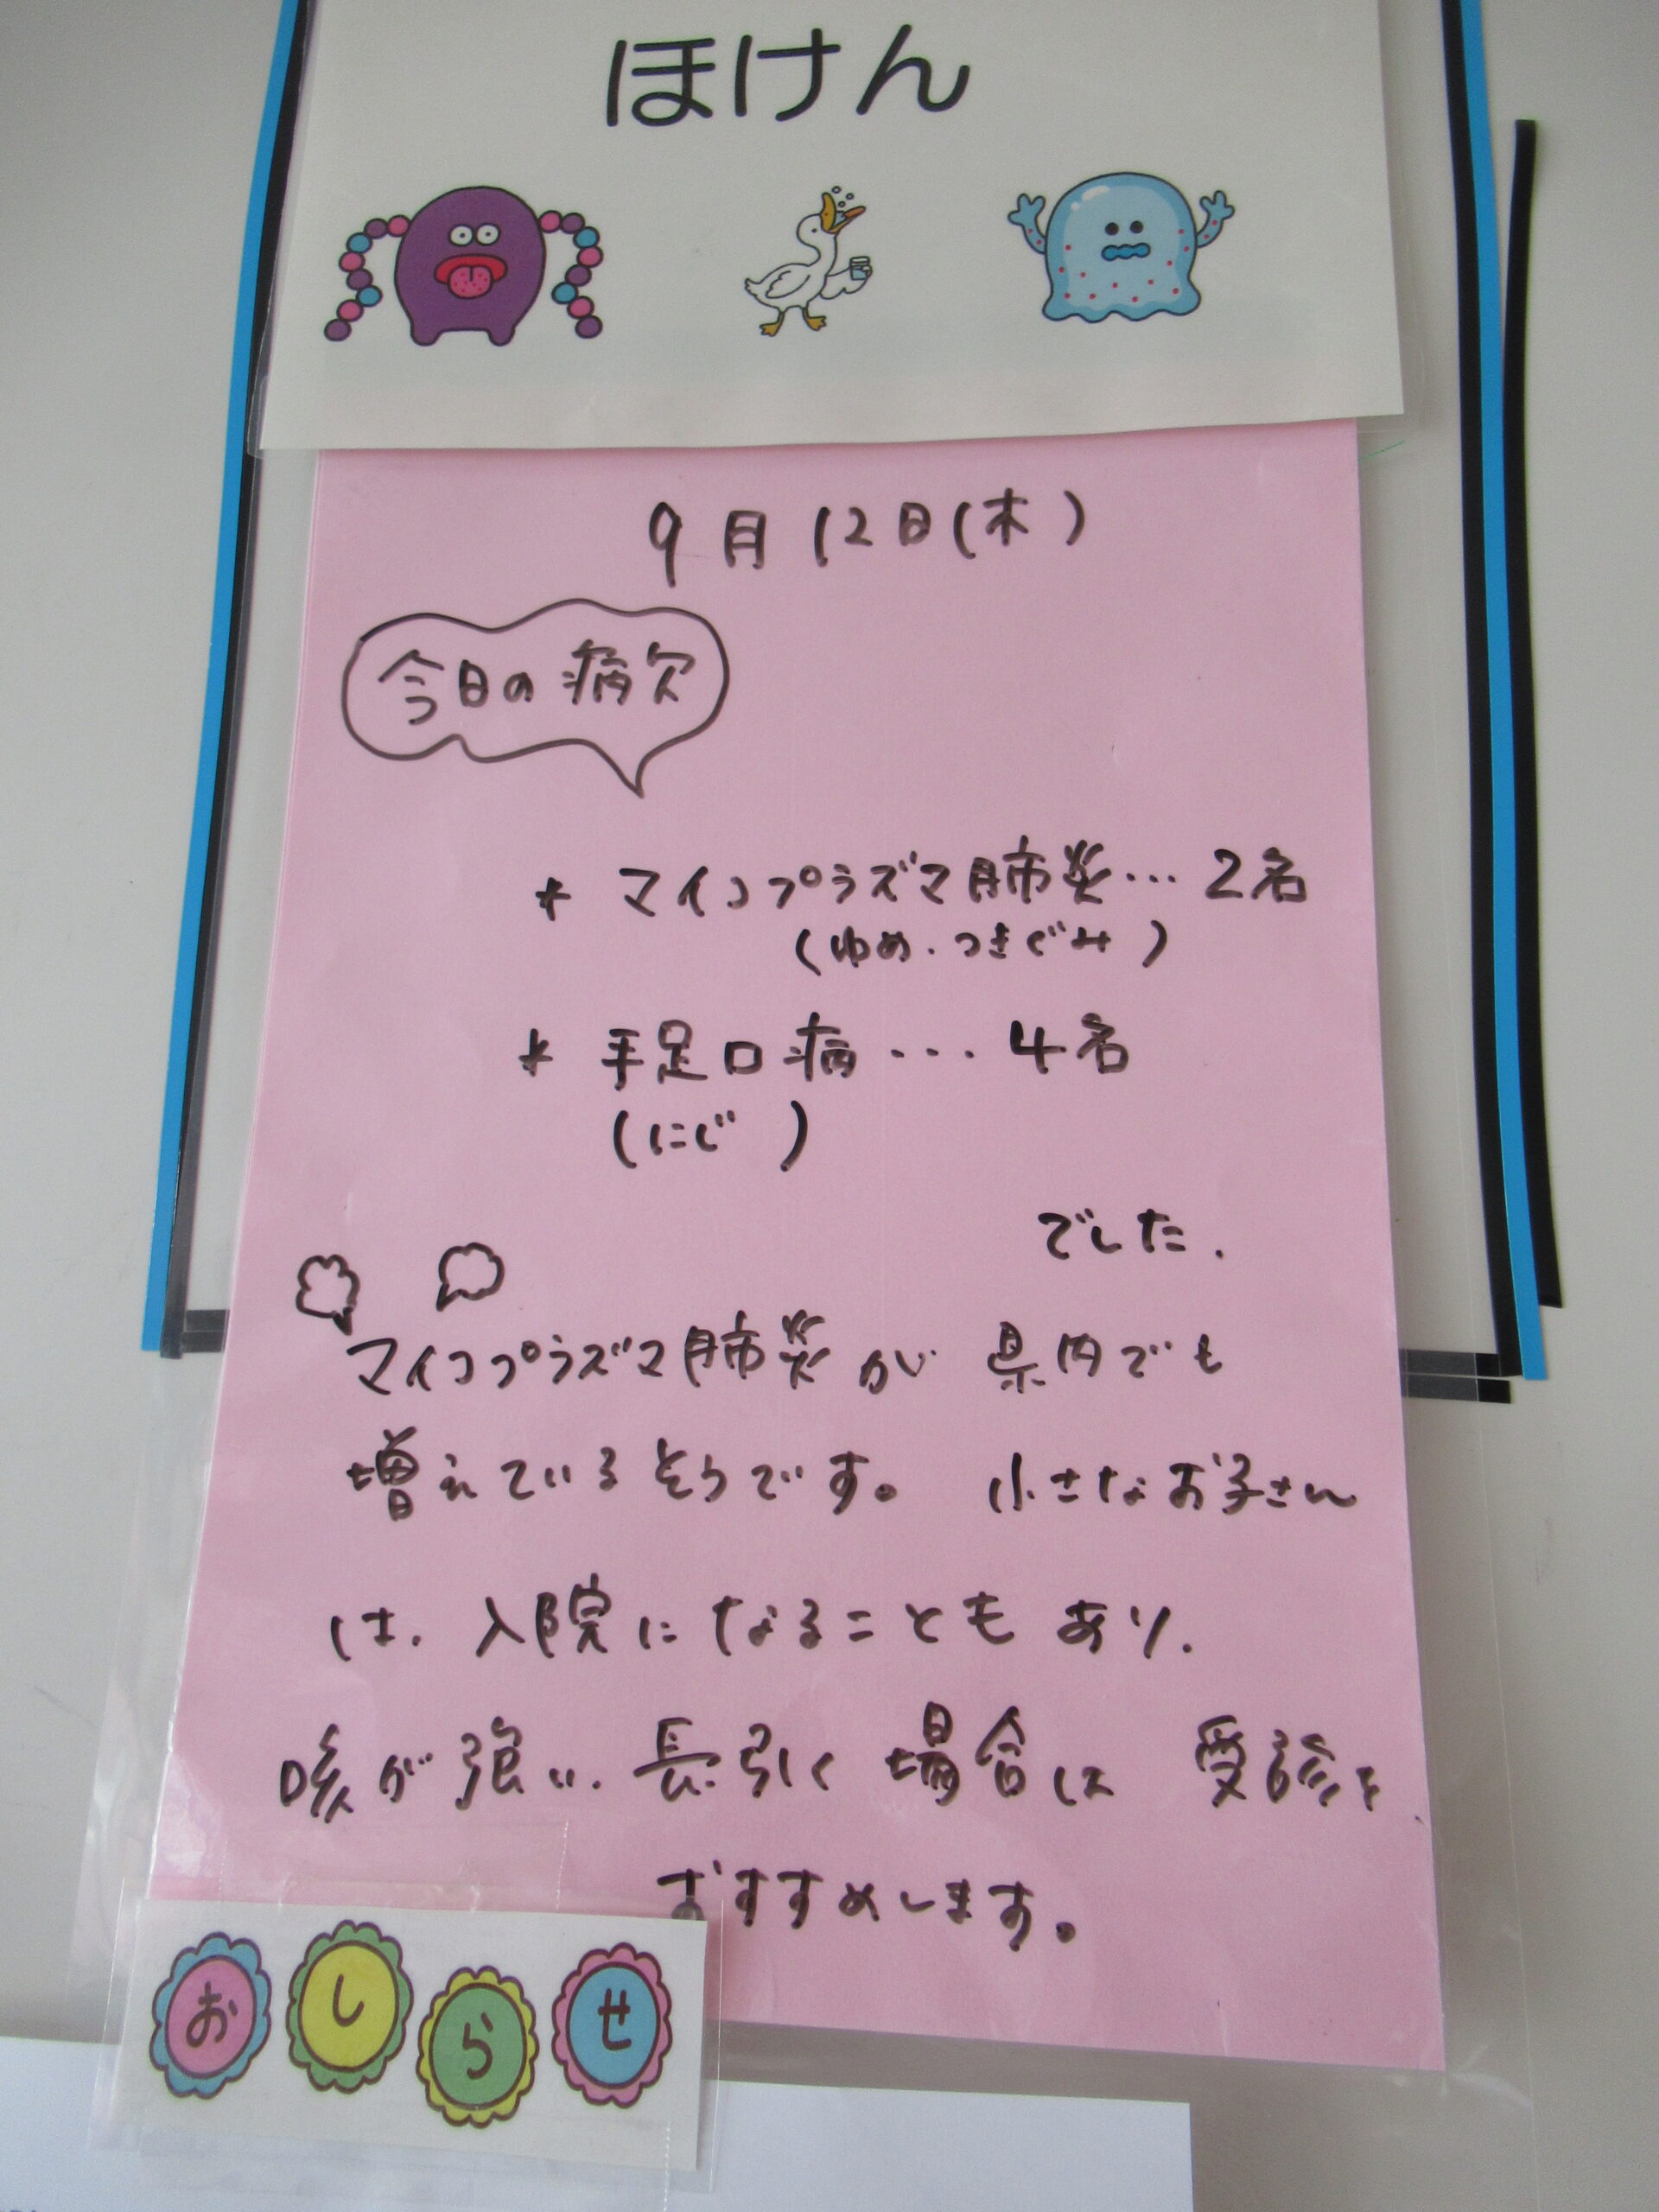 ほけん
9月12日(木)
今日の病欠
* マイコプラズマ肺炎… 2名
(ゆめ.つきぐみ)
* 手足口病 ... 4名
(にじ )
でした.
マイコプラズマ肺炎が 県内でも
増えているそうです。 小さなお子さん
は. 入院になることも あり.
咳が強い. 長引く 場合は 受診を
おすすめします。
おしらせ